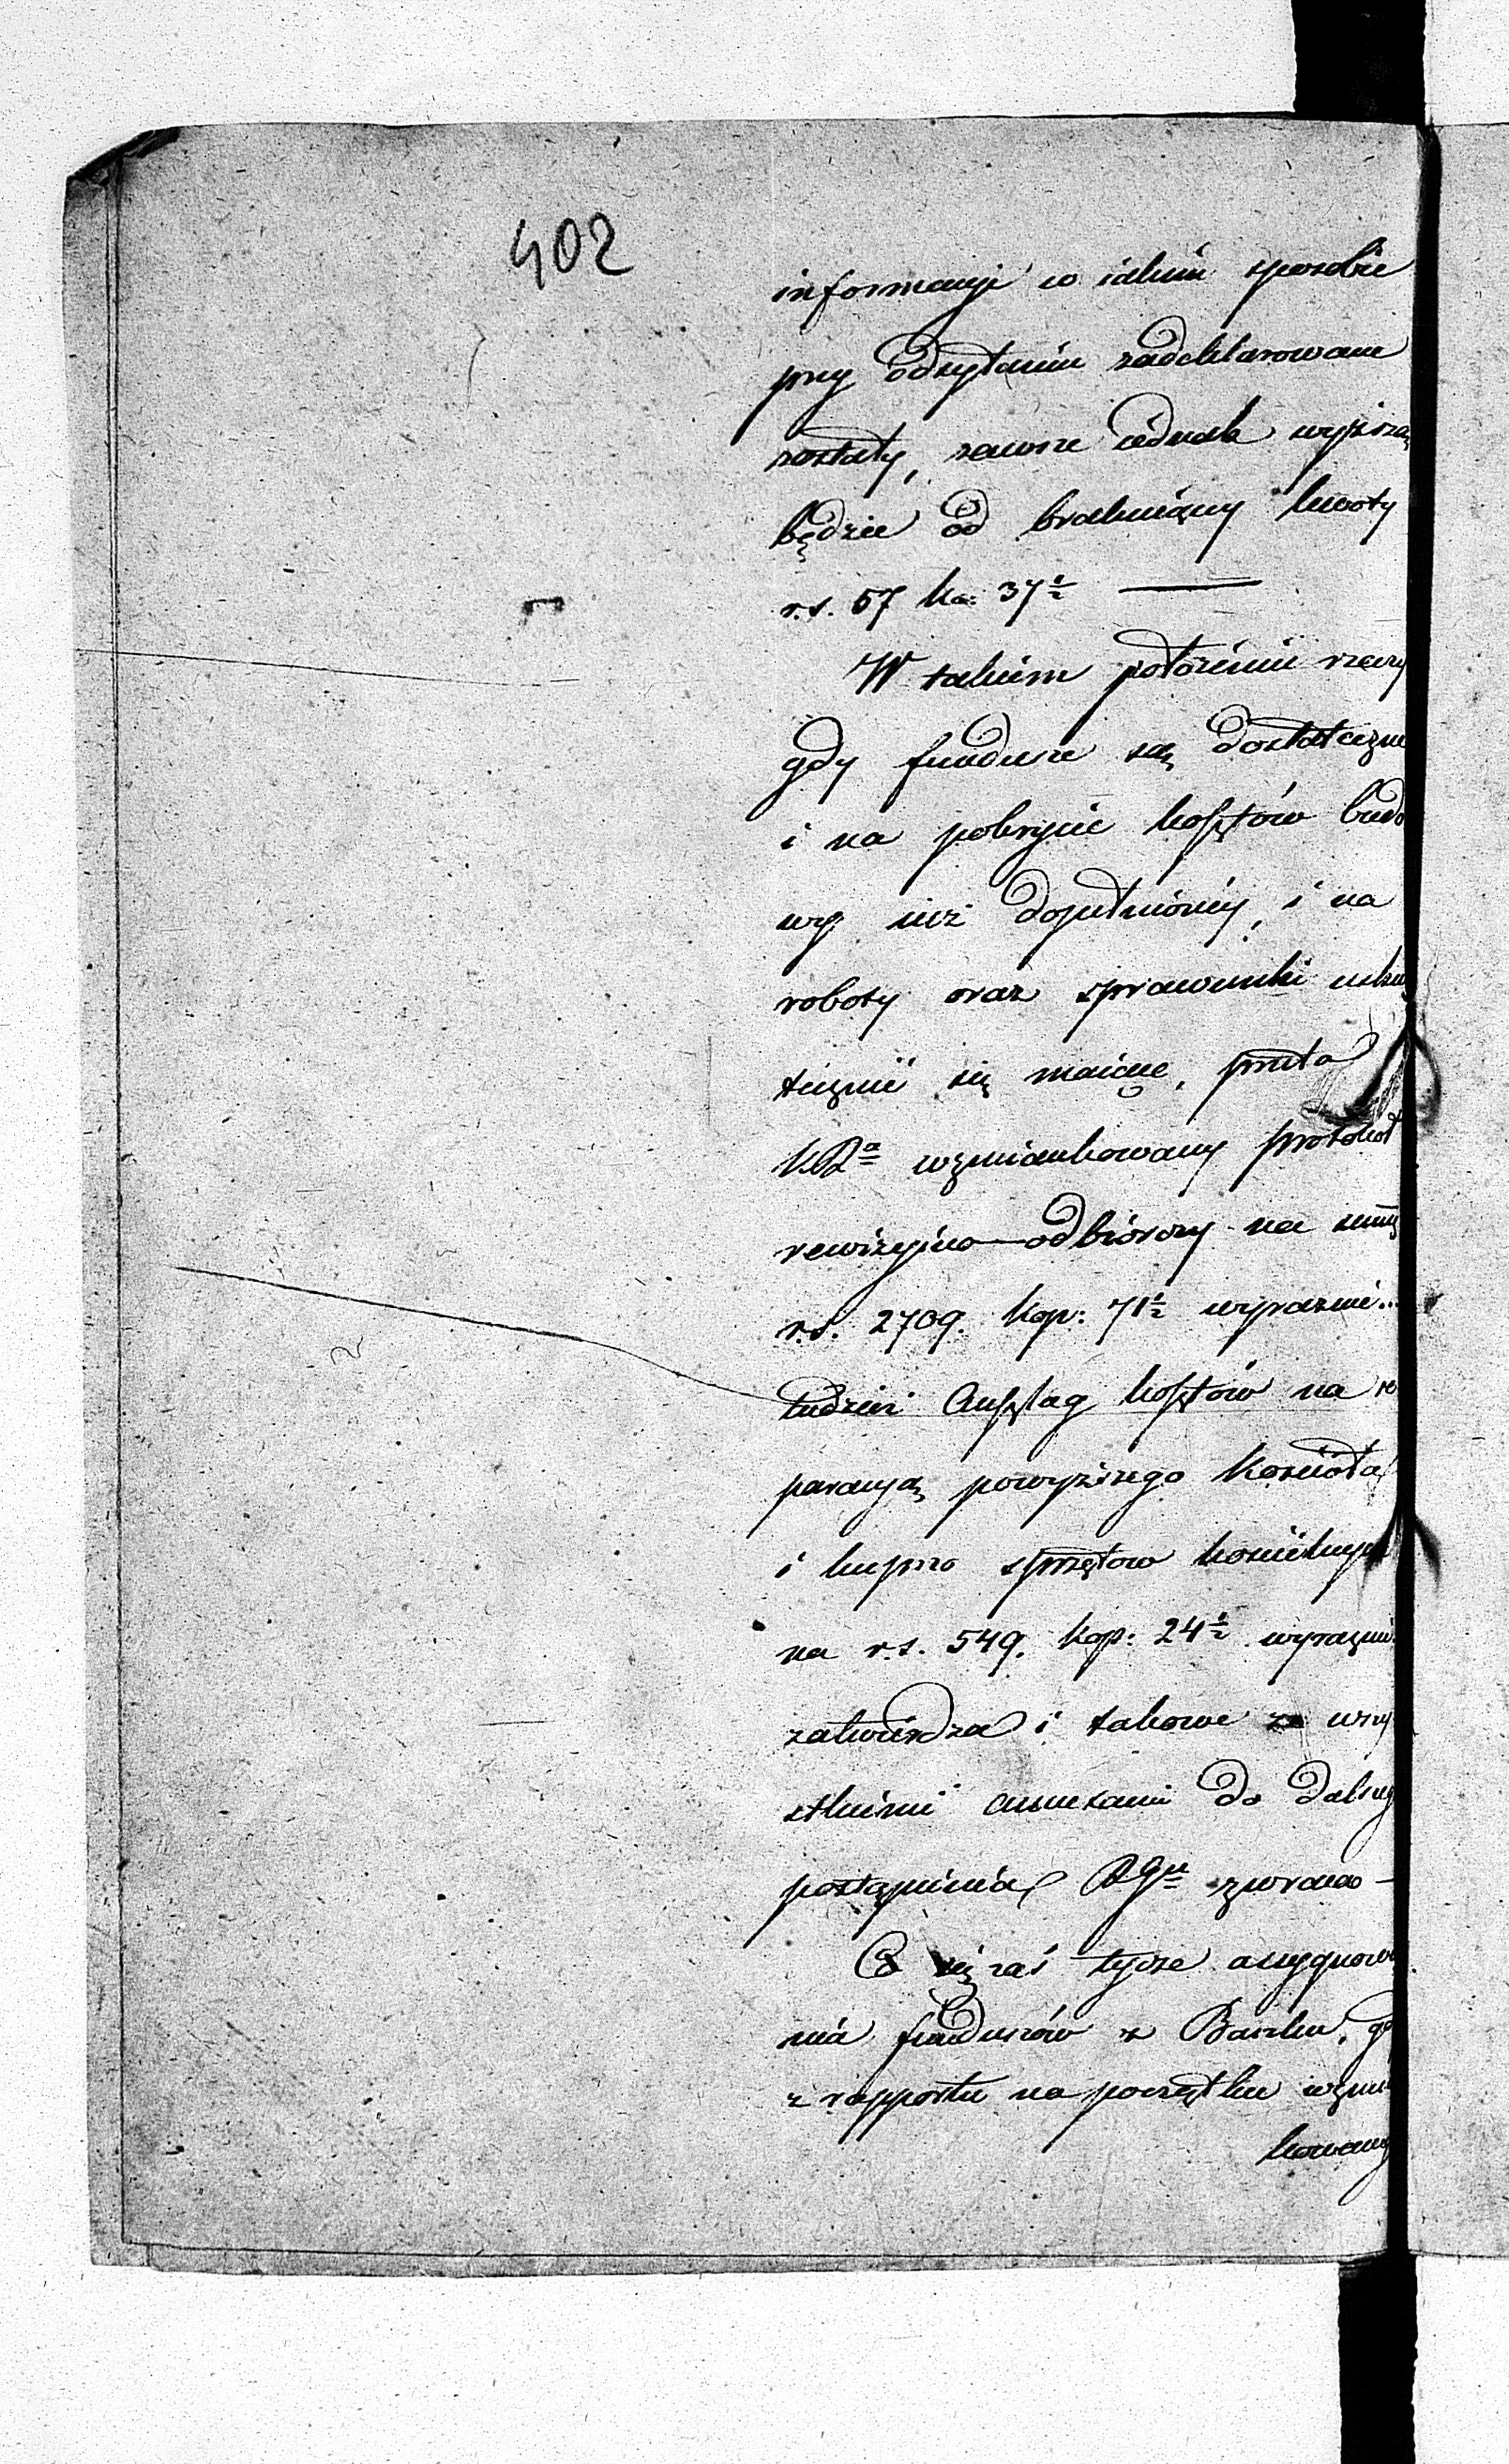 402
informacyi w iakim sposobie
przy odsyłaniu zadeklarowane
zostały, zawsze iednak wyższą
będzie od brakuiącey kwoty
r.s. 57 ko: 37½ —
W takiem położeniu rzeczy
gdy fundusze są dostateczne
i na pokrycie kosztów budo
wy iuż dopełnioney, i na
roboty oraz sprawunki usku
tecznić się maiące, przeto
KRᵃ wzmiankowany protokoł
rewizyino-odbiorczy na summę
r.s. 2709. kop: 71½ wyraźnie...
tudzież Anszlag kosztów na re
paracyą powyższego Kościoła
i kupno sprzętow kościelnych
na r.s. 549. kop: 24½ wyraźnie
zatwierdza i takowe ze wszy
stkiemi annexami do dalszego
postąpienia RGᵘ zwraca —
Co się zaś tycze assygnowa
nia funduszów z Banku, gdy
z rapportu na początku wzmian
kowany